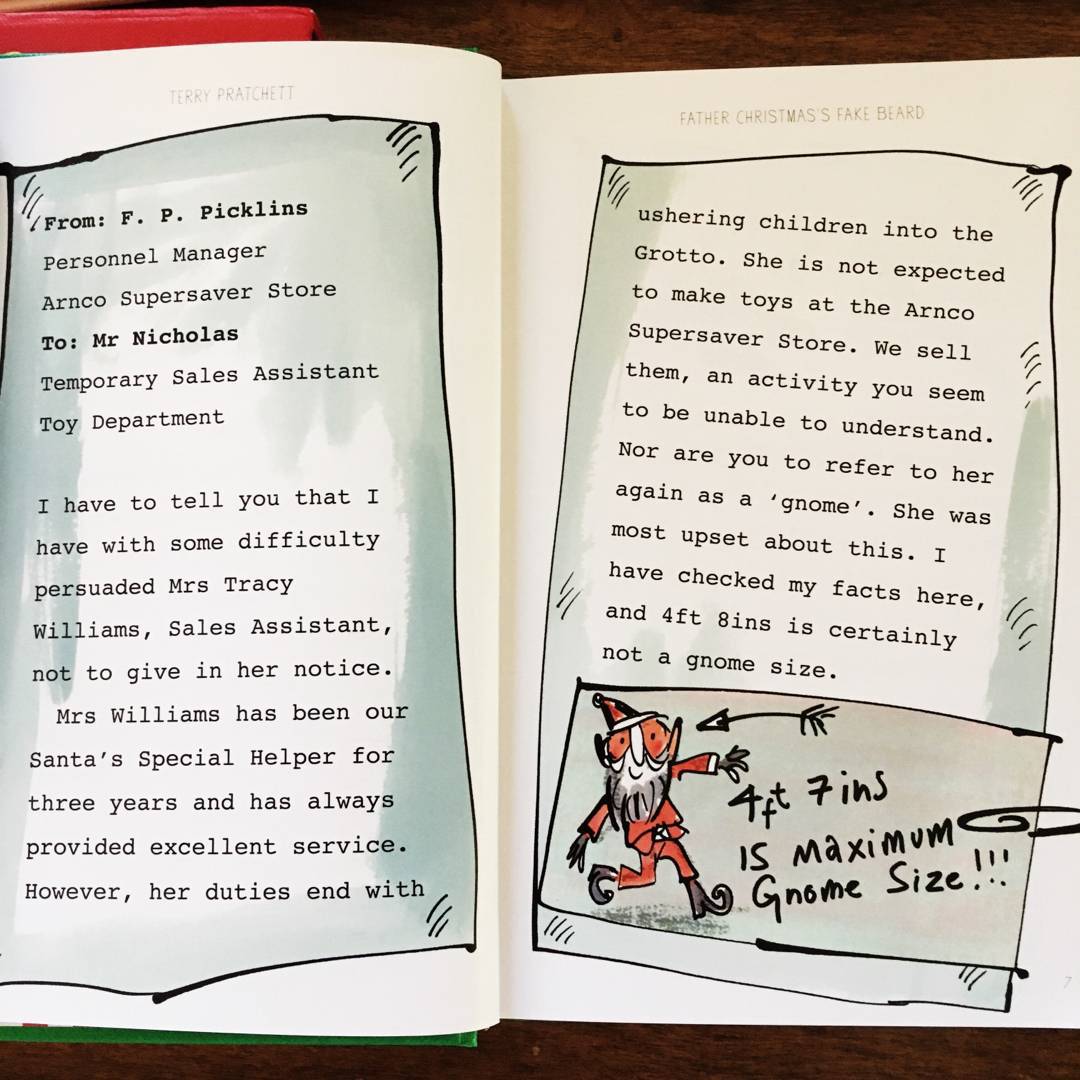 TERRY PRATCHETT
From: F. P. Picklins
Personnel Manager
Arnco Supersaver Store
To: Mr Nicholas
Temporary Sales Assistant
Toy Department
I have to tell you that I
have with some difficulty
persuaded Mrs Tracy
Williams, Sales Assistant,
not to give in her notice.
Mrs Williams has been our
Santa's Special Helper for
three years and has always
provided excellent service.
However, her duties end with
FATHER CHRISTMAS'S FAKE BEARD
ushering children into the
Grotto. She is not expected
to make toys at the Arnco
Supersaver Store. We sell
them, an activity you seem
to be unable to understand.
Nor are you to refer to her
again as a ‘gnome’. She was
most upset about this. I
have checked my facts here,
and 4ft 8ins is certainly
not a gnome size.
4ft 7ins
is maximum
Gnome Size!!!
7